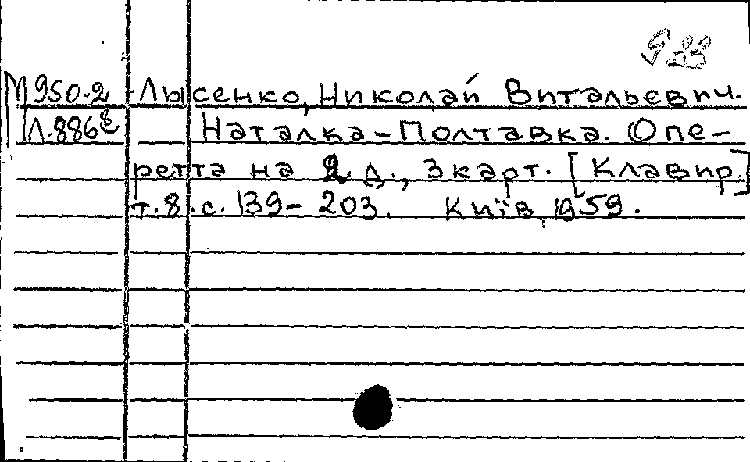 М950-2 Лысенко, Николай Витальевич.
Л.886 Наталка-Полтавка. Опе-
ретта на 2 д., 3 карт. [Клавир]
т.8. с. 139-203. Київ, 1959.